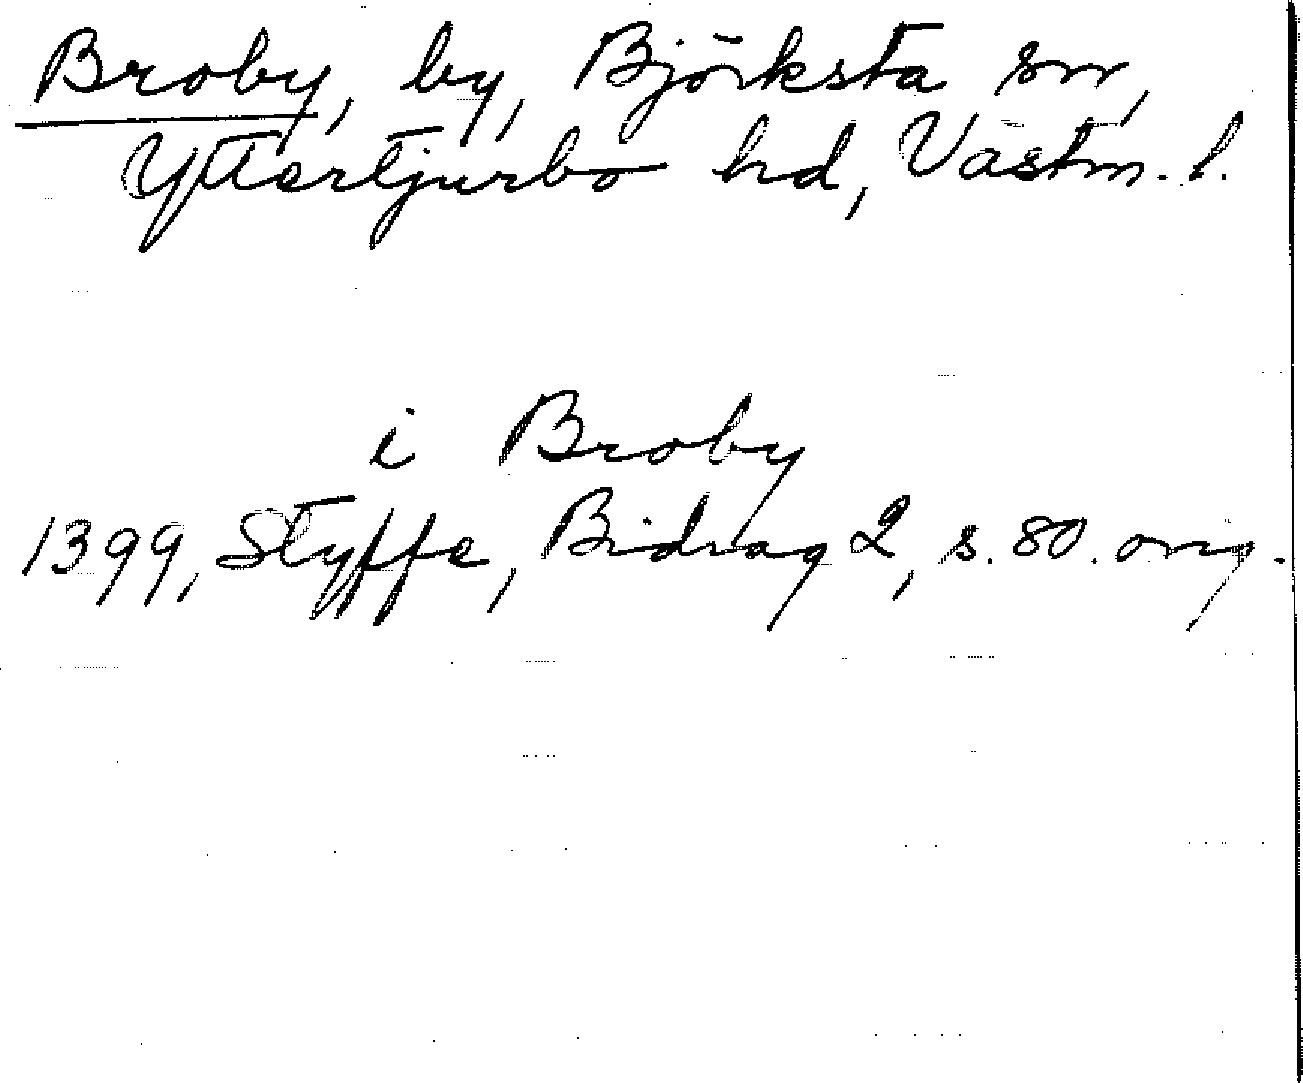 Broby, by, Björksta sn,
Yttertjurbo hd, Västm. l.
i Broby
1399, Styffe, Bidrag 2, s. 80. orig.